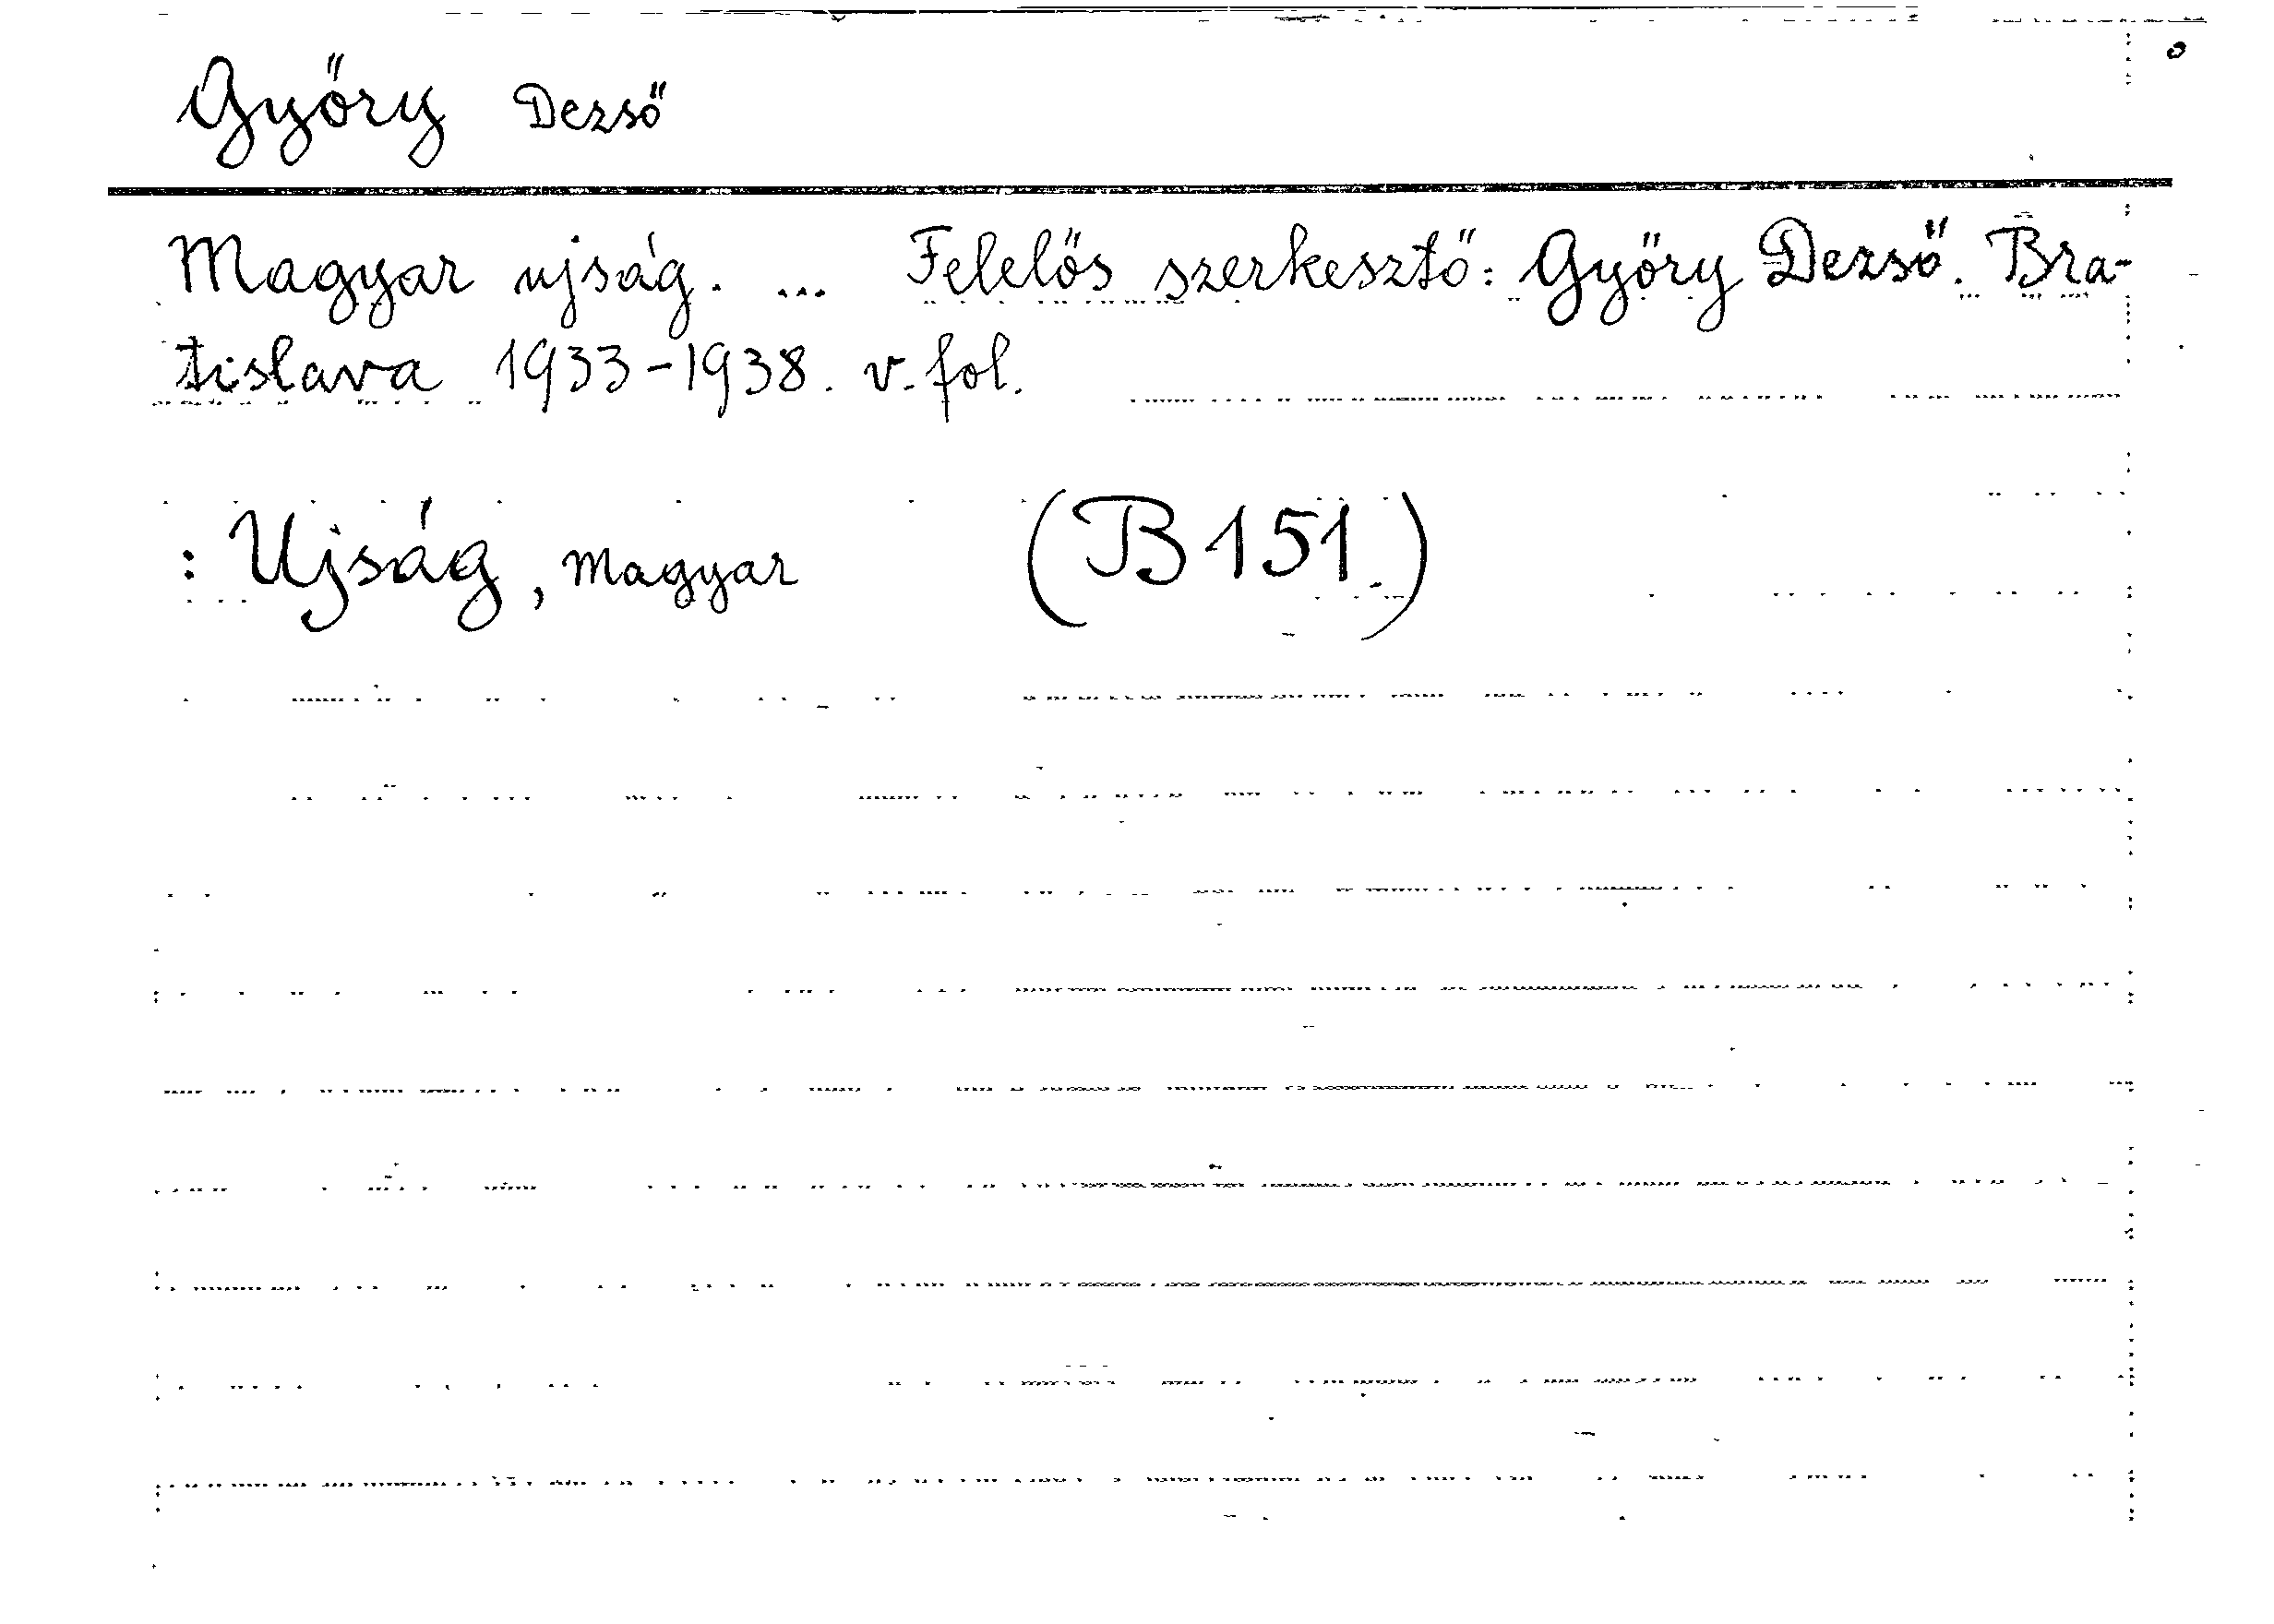 Győry Dezső
Magyar ujság. ... Felelős szerkesztő: Győry Dezső. Bra-
tislava 1933-1938. v. fol.
: Ujság, Magyar (B 151.)